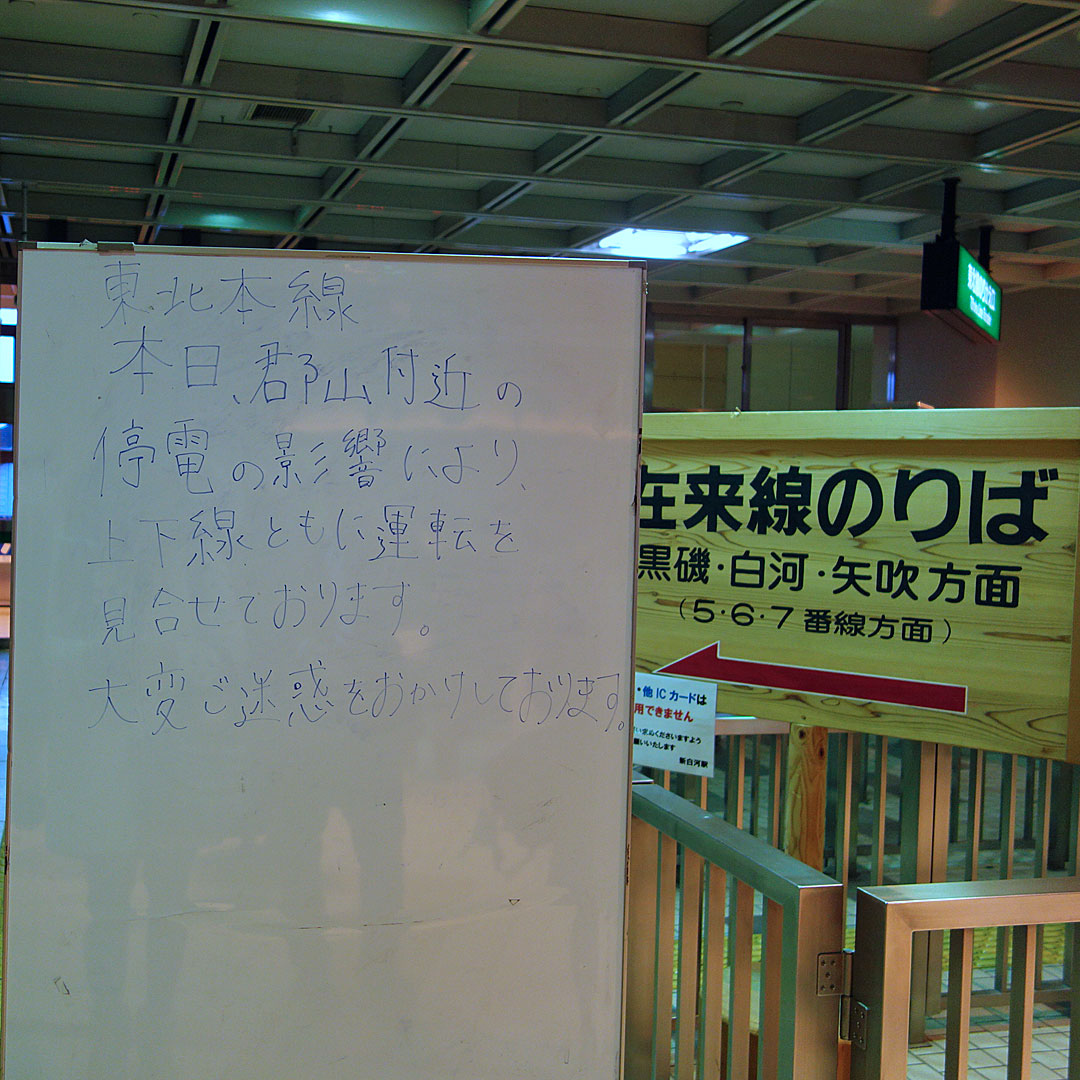 東北本線
本日、郡山付近の
停電の影響により、
上下線ともに運転を
見合せております。
大変ご迷惑をおかけしております。
在来線のりば
黒磯・白河・矢吹方面
(5・6・7番線方面)
・他ICカードは
用できません
求めくださいますよう
願いいたします
新白河駅